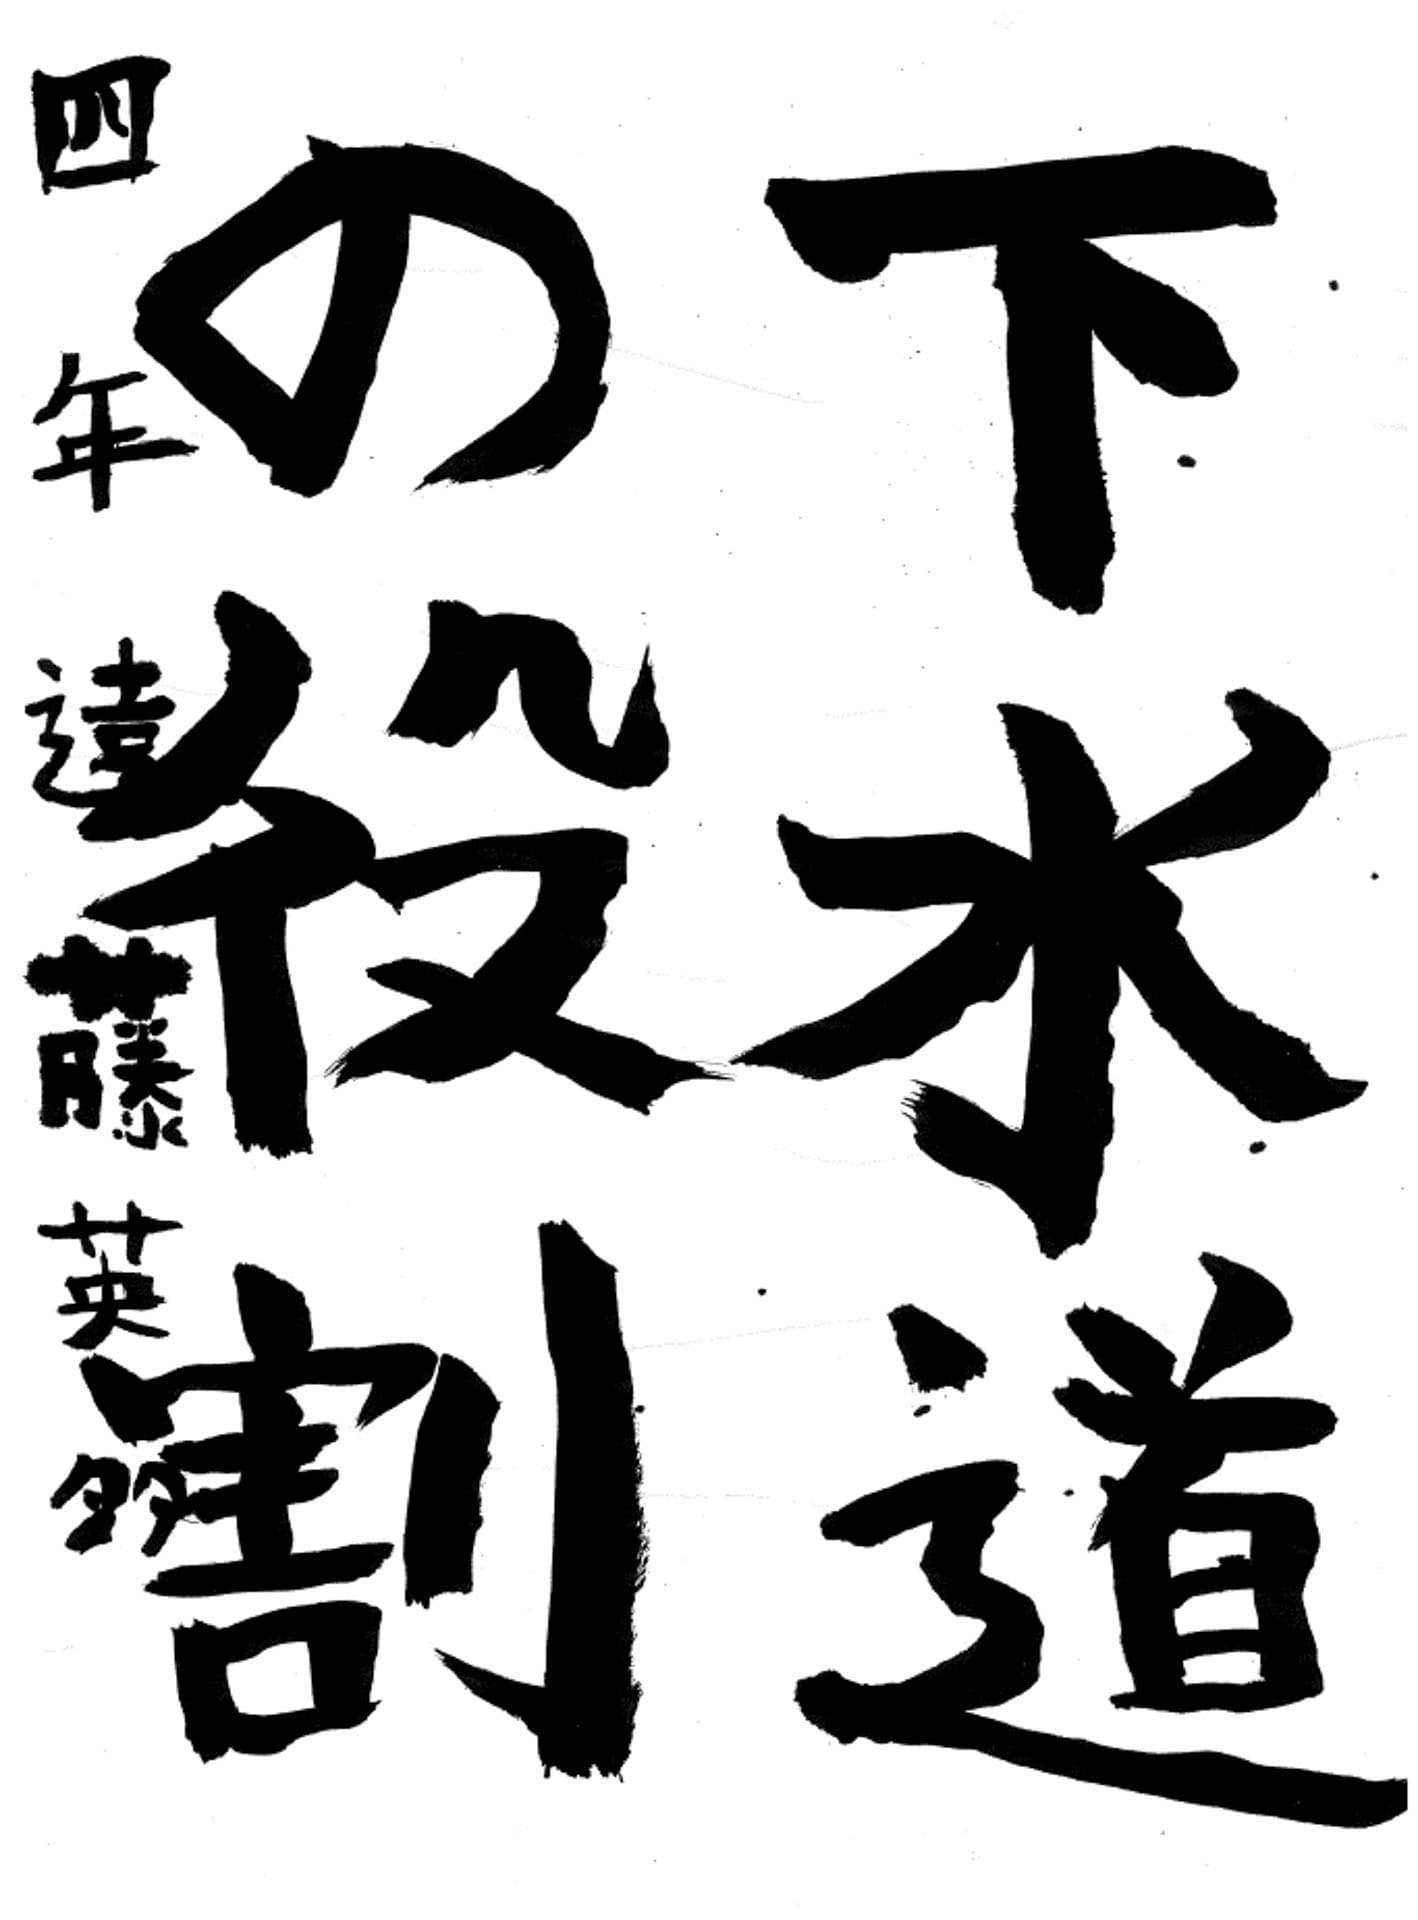 下水道
の役割
四年 遠藤英